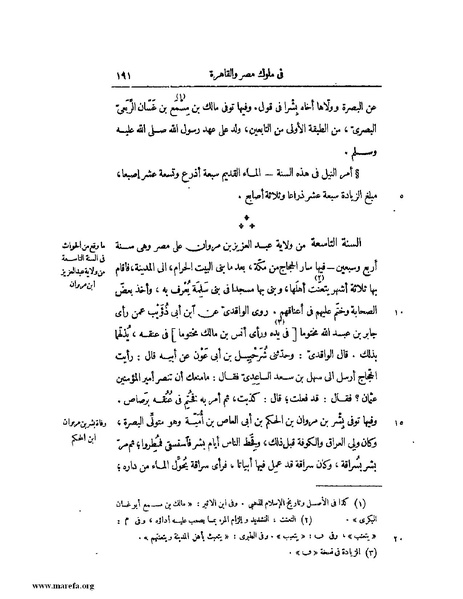 فى ملوك مصر والقاهرة ١٩١
عن البصرة وولّاها أخاه بِشْرا فى قول. وفيها توفى مالك بن مِسْمَع بن غَسّان الرَّبَعىّ (١)
البصرىّ، من الطبقة الأولى من التابعين، ولد على عهد رسول الله صلى الله عليه
وسلم.
§ أمر النيل فى هذه السنة — الماء القديم سبعة أذرع وتسعة عشر إصبعا،
مبلغ الزيادة سبعة عشر ذراعا وثلاثة أصابع. ٥
السنة التاسعة من ولاية عبد العزيز بن مروان على مصر وهى سنة
ما وقع من الحوادث
فى السنة التاسعة
من ولاية عبد العزيز
ابن مروان
أربع وسبعين — فيها سار الحجاج من مكّة، بعد ما بنى البيت الحرام، الى المدينة، فأقام
بها ثلاثة أشهر يتعنّت أهلَها، وبنى بها مسجدا فى بنى سَلِمَة يُعْرف به، وأخذ بعضَ (٢)
الصحابة وختَم عليهم فى أعناقهم. روى الواقدىّ عن ابن أبى ذُؤَيْب عمن رأى ١٠
جابر بن عبد الله مختوما [فى يده ورأى أنس بن مالك مختوما] فى عنقه، يُذِلّهما (٣)
بذلك. قال الواقدىّ: وحدّثنى شُرَحْبِيل بن أبى عَوْن عن أبيه قال: رأيت
الحجّاج أرسل الى سهل بن سعد الساعِدِىّ فقال: مامنعك أن تنصر أمير المؤمنين
عثمان؟ فقال: قد فعلت؛ قال: كذبت، ثم أمر به نُخُتِم فى عُنُقه برَصاص.
وفيها توفى بِشْر بن مروان بن الحكم بن أبى العاص بن أُميّة وهو متولّى البصرة، ١٥
وفاة بشر بن مروان
ابن الحكم
وكان ولى العراق والكوفة قبل ذلك، وقُحِط الناس أيام بشر فآستسقى فمُطِروا؛ ثم مرّ
بشر بسُراقة، وكان سراقة قد عمل فيها أبياتا، فرأى سراقة يُحوّل الماء من داره؛
(١) كذا فى الأصل وتاريخ الإسلام للذهبى. وفى ابن الأثير: «مالك بن مسمع أبو غسان
البكرى». (٢) التعنت: التشديد وإلزام المرء بما يصعب عليه أداؤه، وفى م:
«يتعتب»، وفى ف: «يتعيب». وفى الطبرى: «يتعبث بأهل المدينة ويتعنتهم». ٢٠
(٣) الزيادة فى نسخة «ف».
www.marefa.org